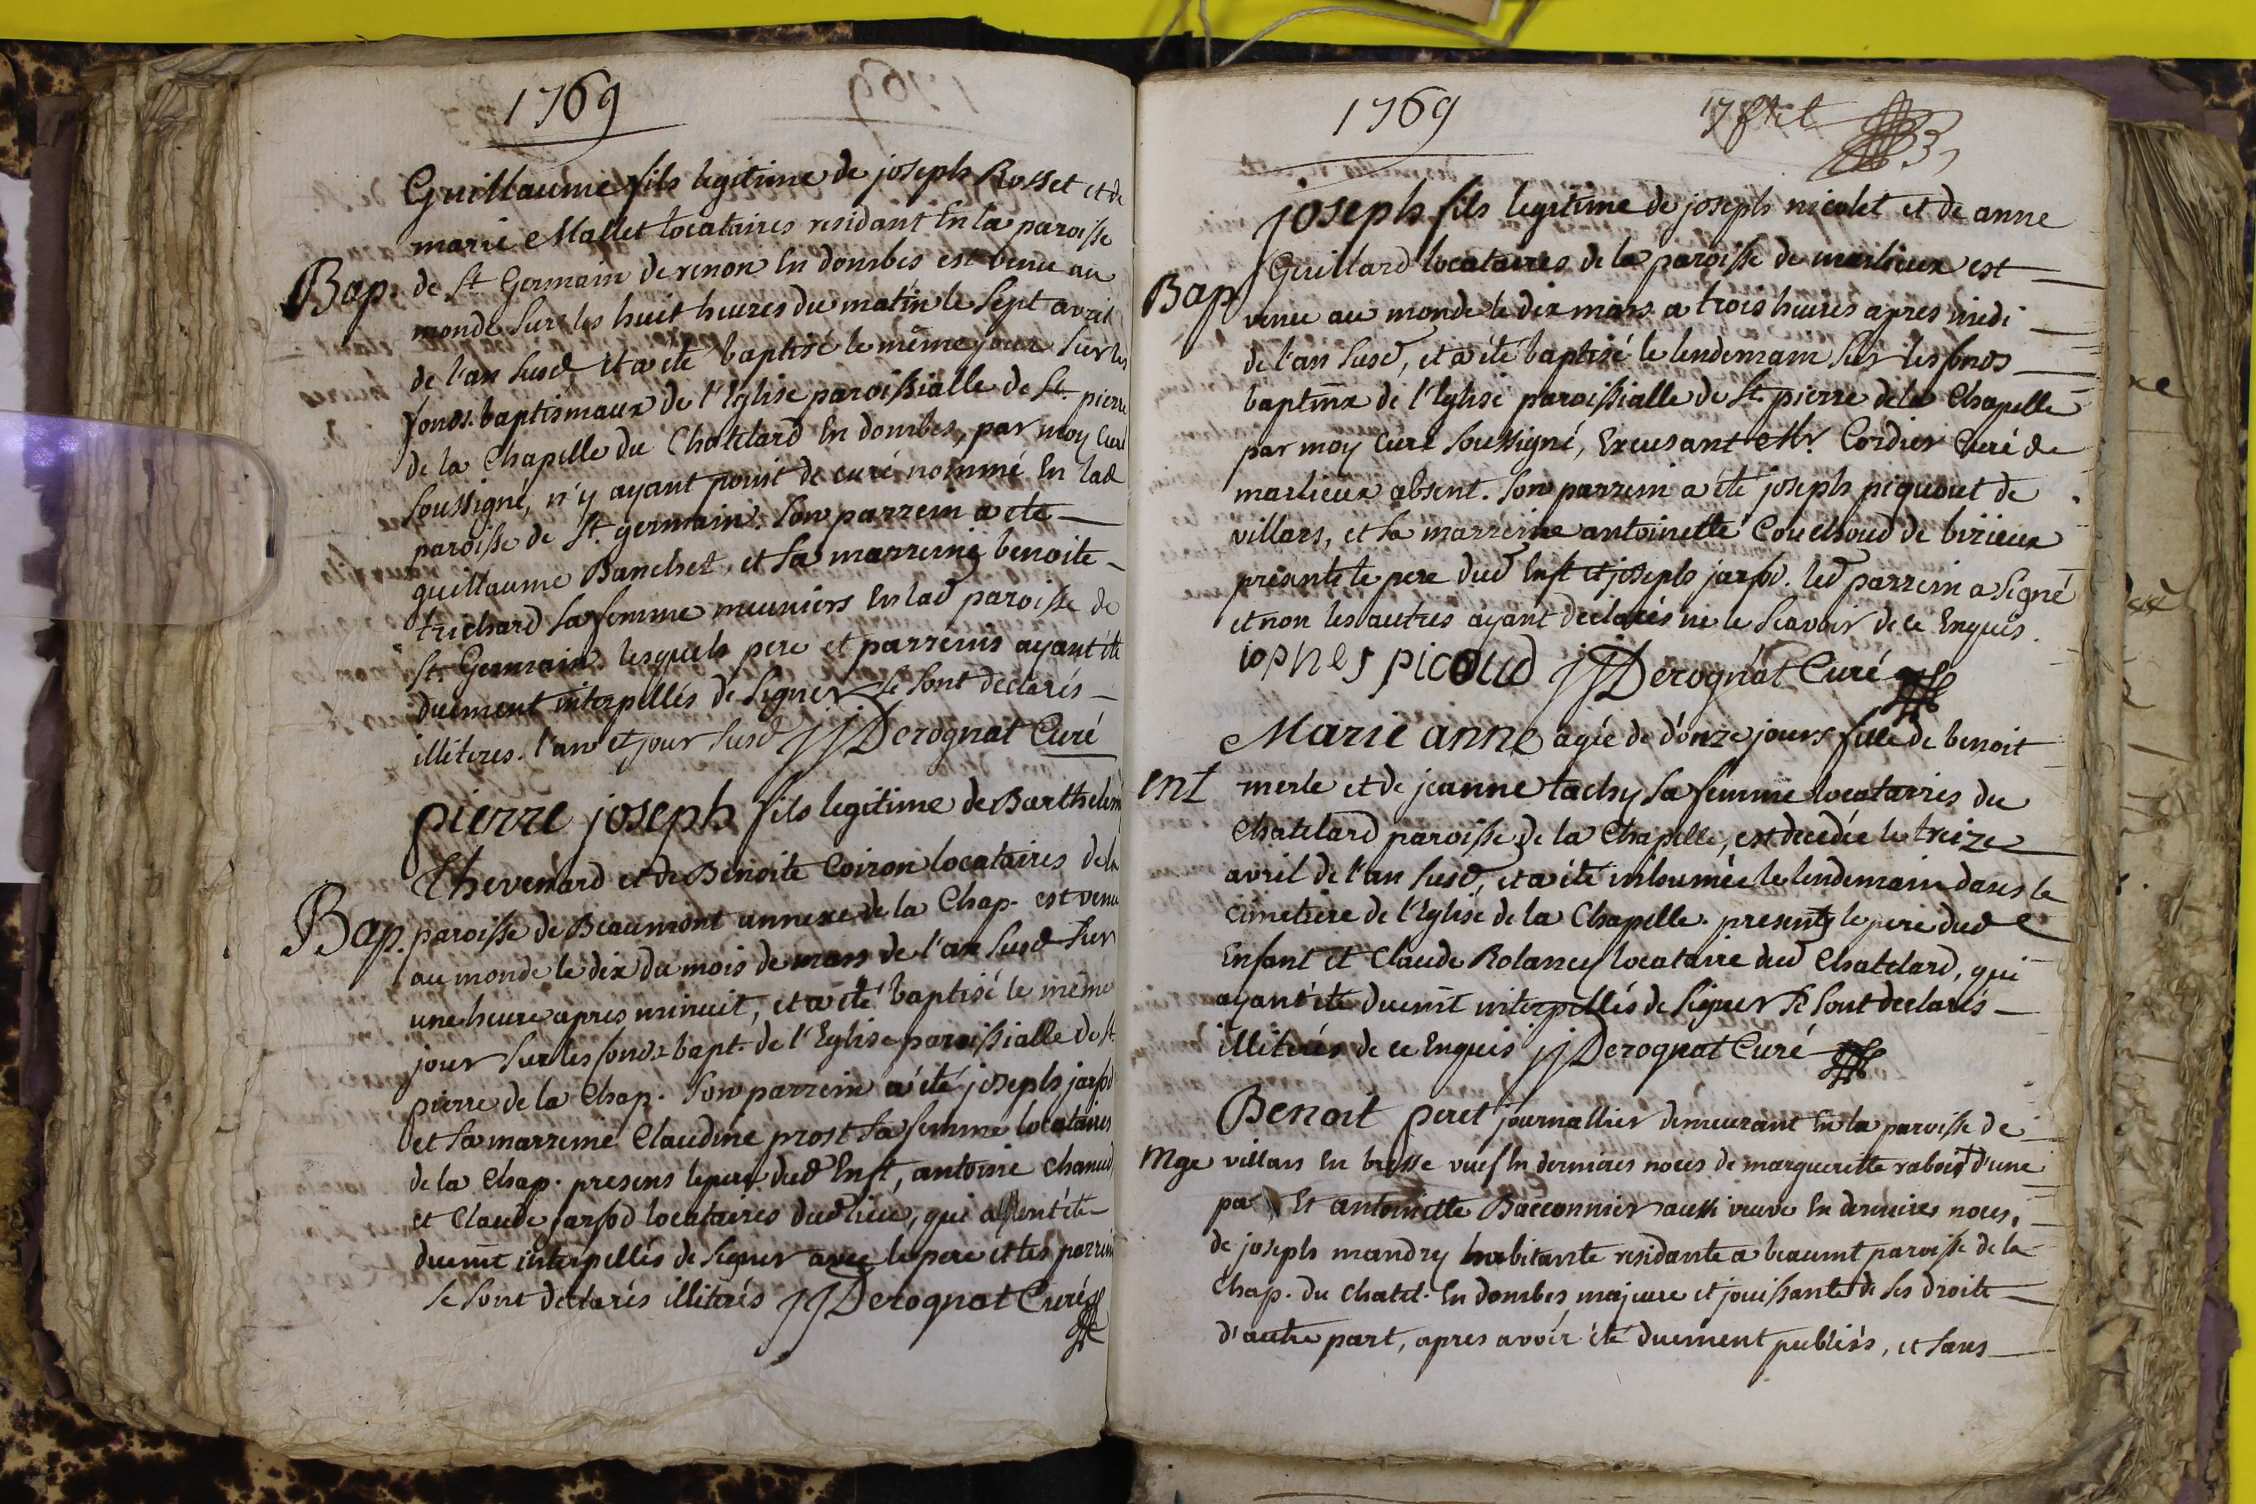 1769
Guillaume fils legitime de joseph Rosset et de
marie Mallet locataires residant En la paroisse
Bap. de St Germain de renon En dombes est venu au
monde sur les huit heures du matin le sept avril
de l'an susd et a eté baptisé le même jour sur les
fonds baptismaux de l'Eglise paroissialle de St. pierre
de la Chapelle du Chatelard En dombes, par moy Curé
soussigné, n'y ayant point de curé nommé En lad
paroisse de St. germain. Son parrein a eté
guillaume Banchet, et sa marreine benoite
trichard sa femme meuniers En lad paroisse de
St. Germain. lesquels pere et parreins ayant été
duement interpellés de signer se sont declarés
illiteres. l'an et jour susd JJ Derognat Curé
pierre joseph fils legitime de Barthelemi
Thevenard et de Benoite Coiron locataires de la
Bap. paroisse de Beaumont annexe de la Chap. est venu
au monde le dix du mois de mars de l'an susd sur
une heure apres minuit, et a été baptisé le même
jour sur les fonds bapt. de l'Eglise paroissialle de St.
pierre de la Chap. Son parrein a été joseph jarfod
et sa marreine Claudine prost sa femme locataires
de la Chap. presens le pere dud Enft, antoine Chanud
et Claude jarfod locataires dud lieu, qui ayant été
duemt interpellés de signer avec le pere et les parrein
se sont declarés illiterés JJ Derognat Curé
1769
joseph fils legitime de joseph nicolet et de anne
Guillard locataires de la paroisse de marlieux est
Bap
venu au monde le dix mars a trois heures apres midi
de l'an susd, et a été baptisé le lendemain sur les fonds
baptmx de l'Eglise paroissialle de St. pierre de la Chapelle
par moy Curé soussigné, Excusant Mr. Cordier Curé de
marlieux absent. Son parrein a été joseph piquout de
villars, et sa marreine antoinette Couchoud de birieux
présents le pere dud Enft et joseph jarfod. led parrein a signé
et non les autres ayant declarés ne le scavoir de ce Enquis.
iophes picoud JJ Derognat Curé
Marie anne agée de d'onze jours fille de benoit
ent merle et de jeanne tachy sa femme locataires du
Chatelard paroisse de la Chapelle, est decedée le treize
avril de l'an susd, et a été inhumée le lendemain dans le
cimetiere de l'Eglise de la Chapelle. presents le pere dud
Enfant et Claude Rolancy locataire dud Chatelard, qui
ayant été duemt interpellés de signer se sont declarés
illiterés de ce Enquis JJ Derognat Curé
Benoit peret journallier demeurant En la paroisse de
Mge villars En bresse veuf En dernieres noces de marguerite d'une
Et antoinette Bacconnier aussi veuve En dernieres noces,
de joseph mandry habitante residante a beaumt paroisse de la
Chap. du Chatel. En dombes majeure et jouissante de ses droits
d'autre part, apres avoir été duement publiés, et sans